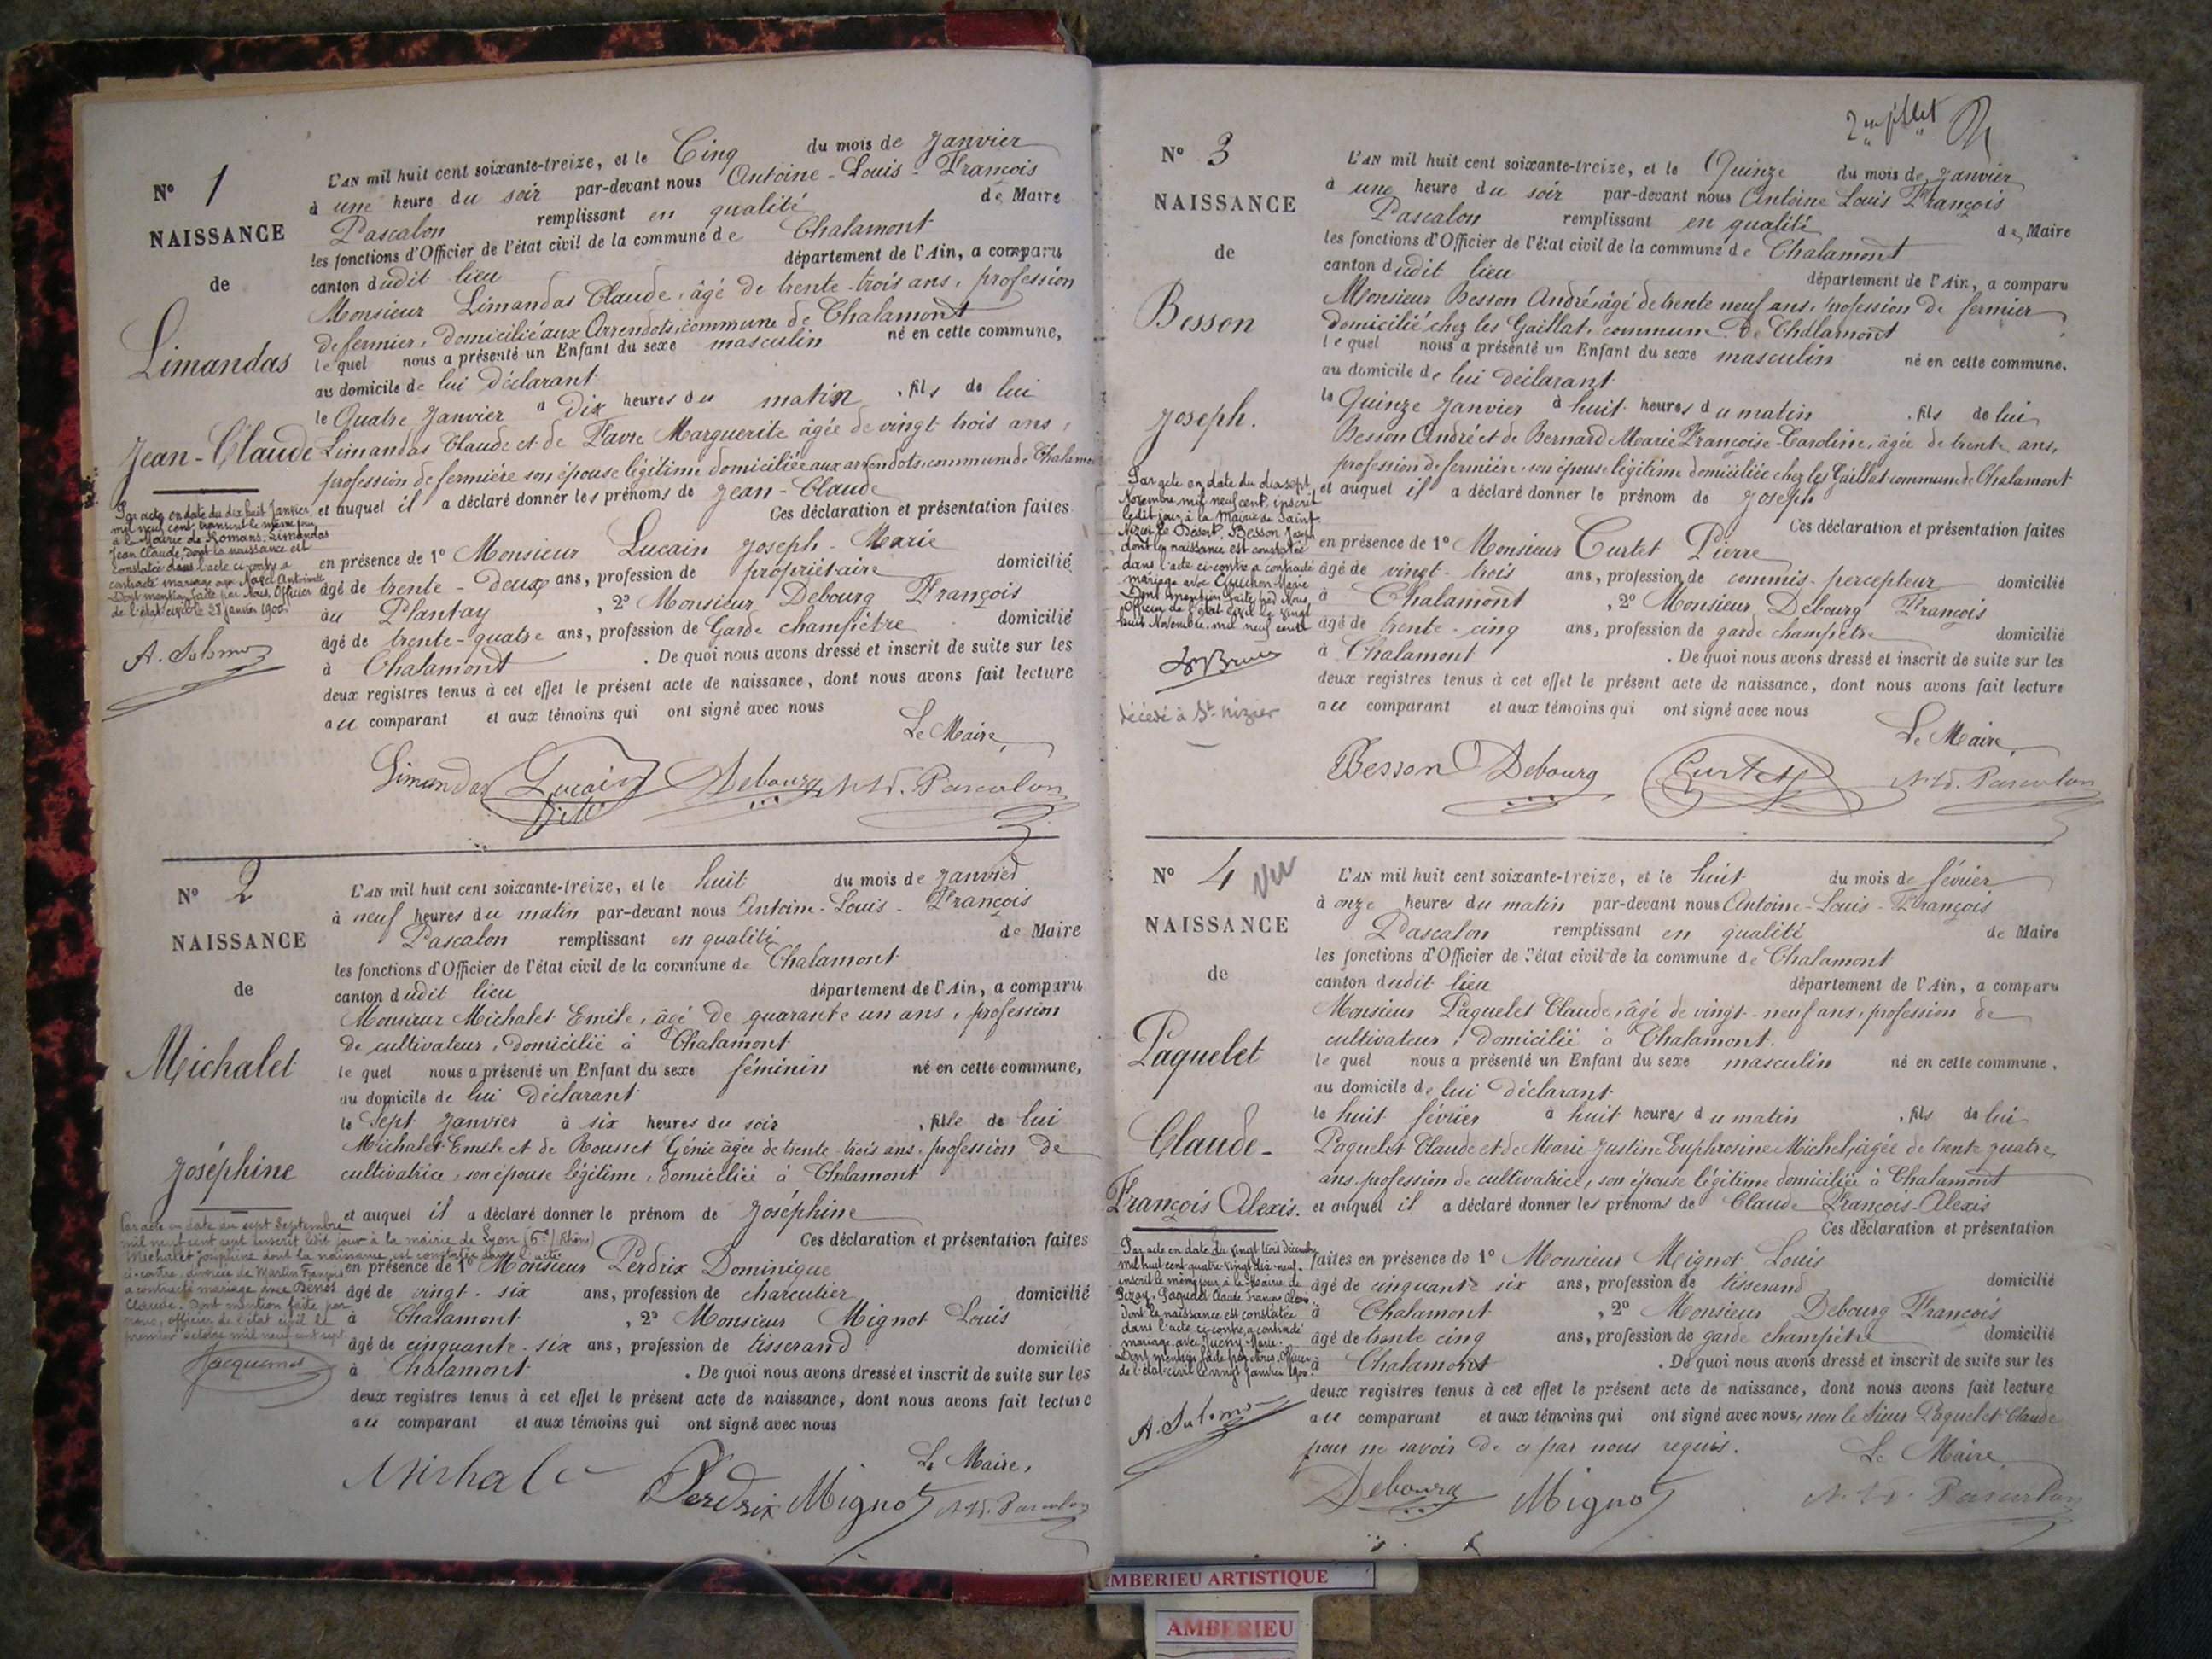 N° 1
NAISSANCE
de
Limandas
Jean-Claude
Par acte en date du dix huit Janvier
mil neuf cent, transcrit le même jour
à la Mairie de Romans, Limandas
Jean Claude, dont la naissance est
constatée dans l'acte ci-contre a
contracté mariage avec Antoinette
Dont mention faite par Nous, Officier
de l'état civil le 28 janvier 1900.
L'AN mil huit cent soixante-treize, et le Cinq du mois de Janvier
à une heure du soir par-devant nous Antoine-Louis-François
Pascalon remplissant en qualité de Maire
les fonctions d'Officier de l'état civil de la commune de Chalamont
canton dudit lieu département de l'Ain, a comparu
Monsieur Limandas Claude, âgé de trente-trois ans, profession
de fermier, domicilié aux Arrendots, commune de Chalamont
lequel nous a présenté un Enfant du sexe masculin né en cette commune,
au domicile de lui déclarant
le Quatre Janvier à Dix heures du matin, fils de lui
Limandas Claude et de Favre Marguerite âgée de vingt trois ans,
profession de fermière son épouse légitime domiciliée aux arrendots commune de Chalamont
et auquel il a déclaré donner les prénoms de Jean-Claude
Ces déclaration et présentation faites
en présence de 1° Monsieur Lucain Joseph-Marie
âgé de trente-deux ans, profession de propriétaire domicilié
au Plantay, 2° Monsieur Debourg François
âgé de trente-quatre ans, profession de Garde champêtre domicilié
à Chalamont. De quoi nous avons dressé et inscrit de suite sur les
deux registres tenus à cet effet le présent acte de naissance, dont nous avons fait lecture
au comparant et aux témoins qui ont signé avec nous
Le Maire,
Limandas Lucain Debourg Pascalon
N° 2
NAISSANCE
de
Michalet
Joséphine
Par acte en date du sept Septembre
mil neuf cent sept inscrit ledit jour à la mairie de Lyon (6e) (Rhône)
Michalet Joséphine dont la naissance est constatée dans l'acte
ci-contre, divorcée de Martin François
a contracté mariage avec
Claude. Dont mention faite par
nous, officier de l'état civil le
premier octobre mil neuf cent sept
Jacquemet
L'AN mil huit cent soixante-treize, et le huit du mois de Janvier
à neuf heures du matin par-devant nous Antoine-Louis-François
Pascalon remplissant en qualité de Maire
les fonctions d'Officier de l'état civil de la commune de Chalamont
canton dudit lieu département de l'Ain, a comparu
Monsieur Michalet Emile, âgé de quarante un ans, profession
de cultivateur, domicilié à Chalamont
lequel nous a présenté un Enfant du sexe féminin né en cette commune,
au domicile de lui déclarant
le Sept Janvier à six heures du soir, fille de lui
Michalet Emile et de Rousset Génie âgée de trente-trois ans, profession de
cultivatrice, son épouse légitime, domiciliée à Chalamont
et auquel il a déclaré donner le prénom de Joséphine
Ces déclaration et présentation faites
en présence de 1° Monsieur Perdrix Dominique
âgé de vingt-six ans, profession de charcutier domicilié
à Chalamont, 2° Monsieur Mignot Louis
âgé de cinquante-six ans, profession de tisserand domicilié
à Chalamont. De quoi nous avons dressé et inscrit de suite sur les
deux registres tenus à cet effet le présent acte de naissance, dont nous avons fait lecture
au comparant et aux témoins qui ont signé avec nous
Le Maire,
Michalet Perdrix Mignot Pascalon
N° 3
NAISSANCE
de
Besson
Joseph.
Par acte en date du dix sept
Novembre mil neuf cent, inscrit
ledit jour, à la Mairie de Saint
Nizier le Désert, Besson Joseph
dont la naissance est constatée
dans l'acte ci-contre a contracté
mariage avec Marie
Dont mention faite par Nous
Officier de l'état civil le vingt
huit Novembre, mil neuf cent
décédé à St Nizier
L'AN mil huit cent soixante-treize, et le Quinze du mois de Janvier
à une heure du soir par-devant nous Antoine Louis François
Pascalon remplissant en qualité de Maire
les fonctions d'Officier de l'état civil de la commune de Chalamont
canton dudit lieu département de l'Ain, a comparu
Monsieur Besson André, âgé de trente neuf ans, profession de fermier
domicilié chez les Gaillat, commune de Chalamont
lequel nous a présenté un Enfant du sexe masculin né en cette commune,
au domicile de lui déclarant
le Quinze Janvier à huit heures du matin, fils de lui
Besson André et de Bernard Marie Françoise-Caroline, âgée de trente ans,
profession de fermière, son épouse légitime domiciliée chez les Gaillat commune de Chalamont
et auquel il a déclaré donner le prénom de Joseph
Ces déclaration et présentation faites
en présence de 1° Monsieur Curtet Pierre
âgé de vingt-trois ans, profession de commis-percepteur domicilié
à Chalamont, 2° Monsieur Debourg François
âgé de trente-cinq ans, profession de garde champêtre domicilié
à Chalamont. De quoi nous avons dressé et inscrit de suite sur les
deux registres tenus à cet effet le présent acte de naissance, dont nous avons fait lecture
au comparant et aux témoins qui ont signé avec nous
Le Maire,
Besson Debourg Curtet Pascalon
N° 4 Vu
NAISSANCE
de
Paquelet
Claude-
François Alexis.
Par acte en date du vingt trois décembre
mil huit cent quatre-vingt dix-neuf,
inscrit le même jour à la Mairie de
Paquelet Claude François Alexis
dont la naissance est constatée
dans l'acte ci-contre, a contracté
mariage avec Marie.
Dont mention faite par Nous, Officier
de l'état civil le vingt Janvier 1900.
L'AN mil huit cent soixante-treize, et le huit du mois de février
à onze heures du matin par-devant nous Antoine-Louis-François
Pascalon remplissant en qualité de Maire
les fonctions d'Officier de l'état civil de la commune de Chalamont
canton dudit lieu département de l'Ain, a comparu
Monsieur Paquelet Claude, âgé de vingt-neuf ans, profession de
cultivateur, domicilié à Chalamont.
lequel nous a présenté un Enfant du sexe masculin né en cette commune,
au domicile de lui déclarant
le huit février à huit heures du matin, fils de lui
Paquelet Claude et de Marie-Justine Euphrosine Michel, âgée de trente quatre
ans, profession de cultivatrice, son épouse légitime domiciliée à Chalamont
et auquel il a déclaré donner les prénoms de Claude François-Alexis
Ces déclaration et présentation
faites en présence de 1° Monsieur Mignot Louis
âgé de cinquante six ans, profession de tisserand domicilié
à Chalamont, 2° Monsieur Debourg François
âgé de trente cinq ans, profession de garde champêtre domicilié
à Chalamont. De quoi nous avons dressé et inscrit de suite sur les
deux registres tenus à cet effet le présent acte de naissance, dont nous avons fait lecture
au comparant et aux témoins qui ont signé avec nous, non le Sieur Paquelet Claude
pour ne savoir de ce par nous requis.
Le Maire
Debourg Mignot Pascalon
AMBERIEU ARTISTIQUE
AMBERIEU